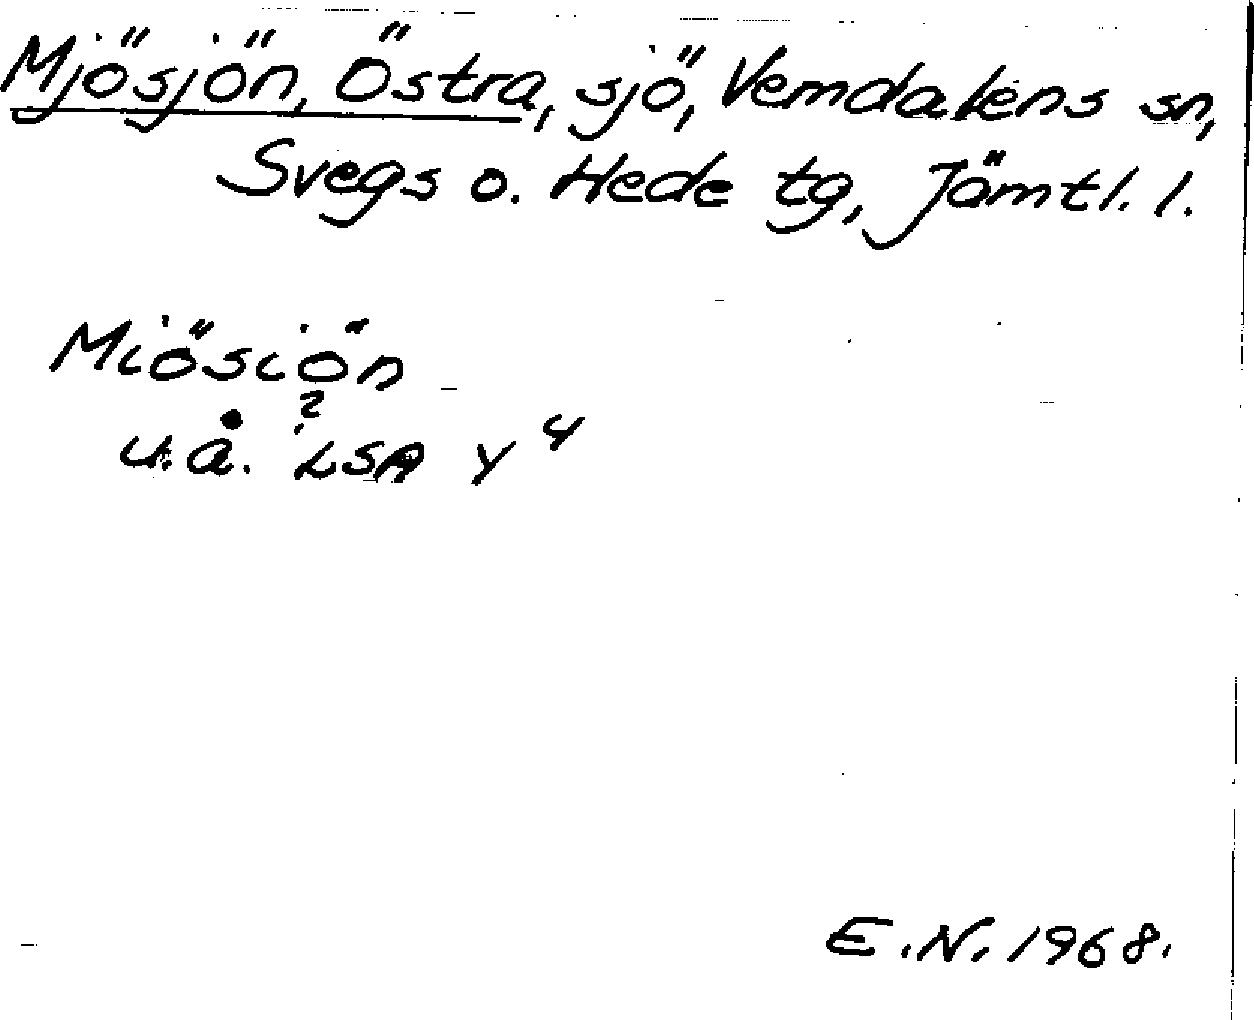 Mjösjön, Östra, sjö, Vemdalens sn,
Svegs o. Hede tg, Jämtl. l.
Miösiön
?
u.å. LSA Y 4
E.N. 1968.